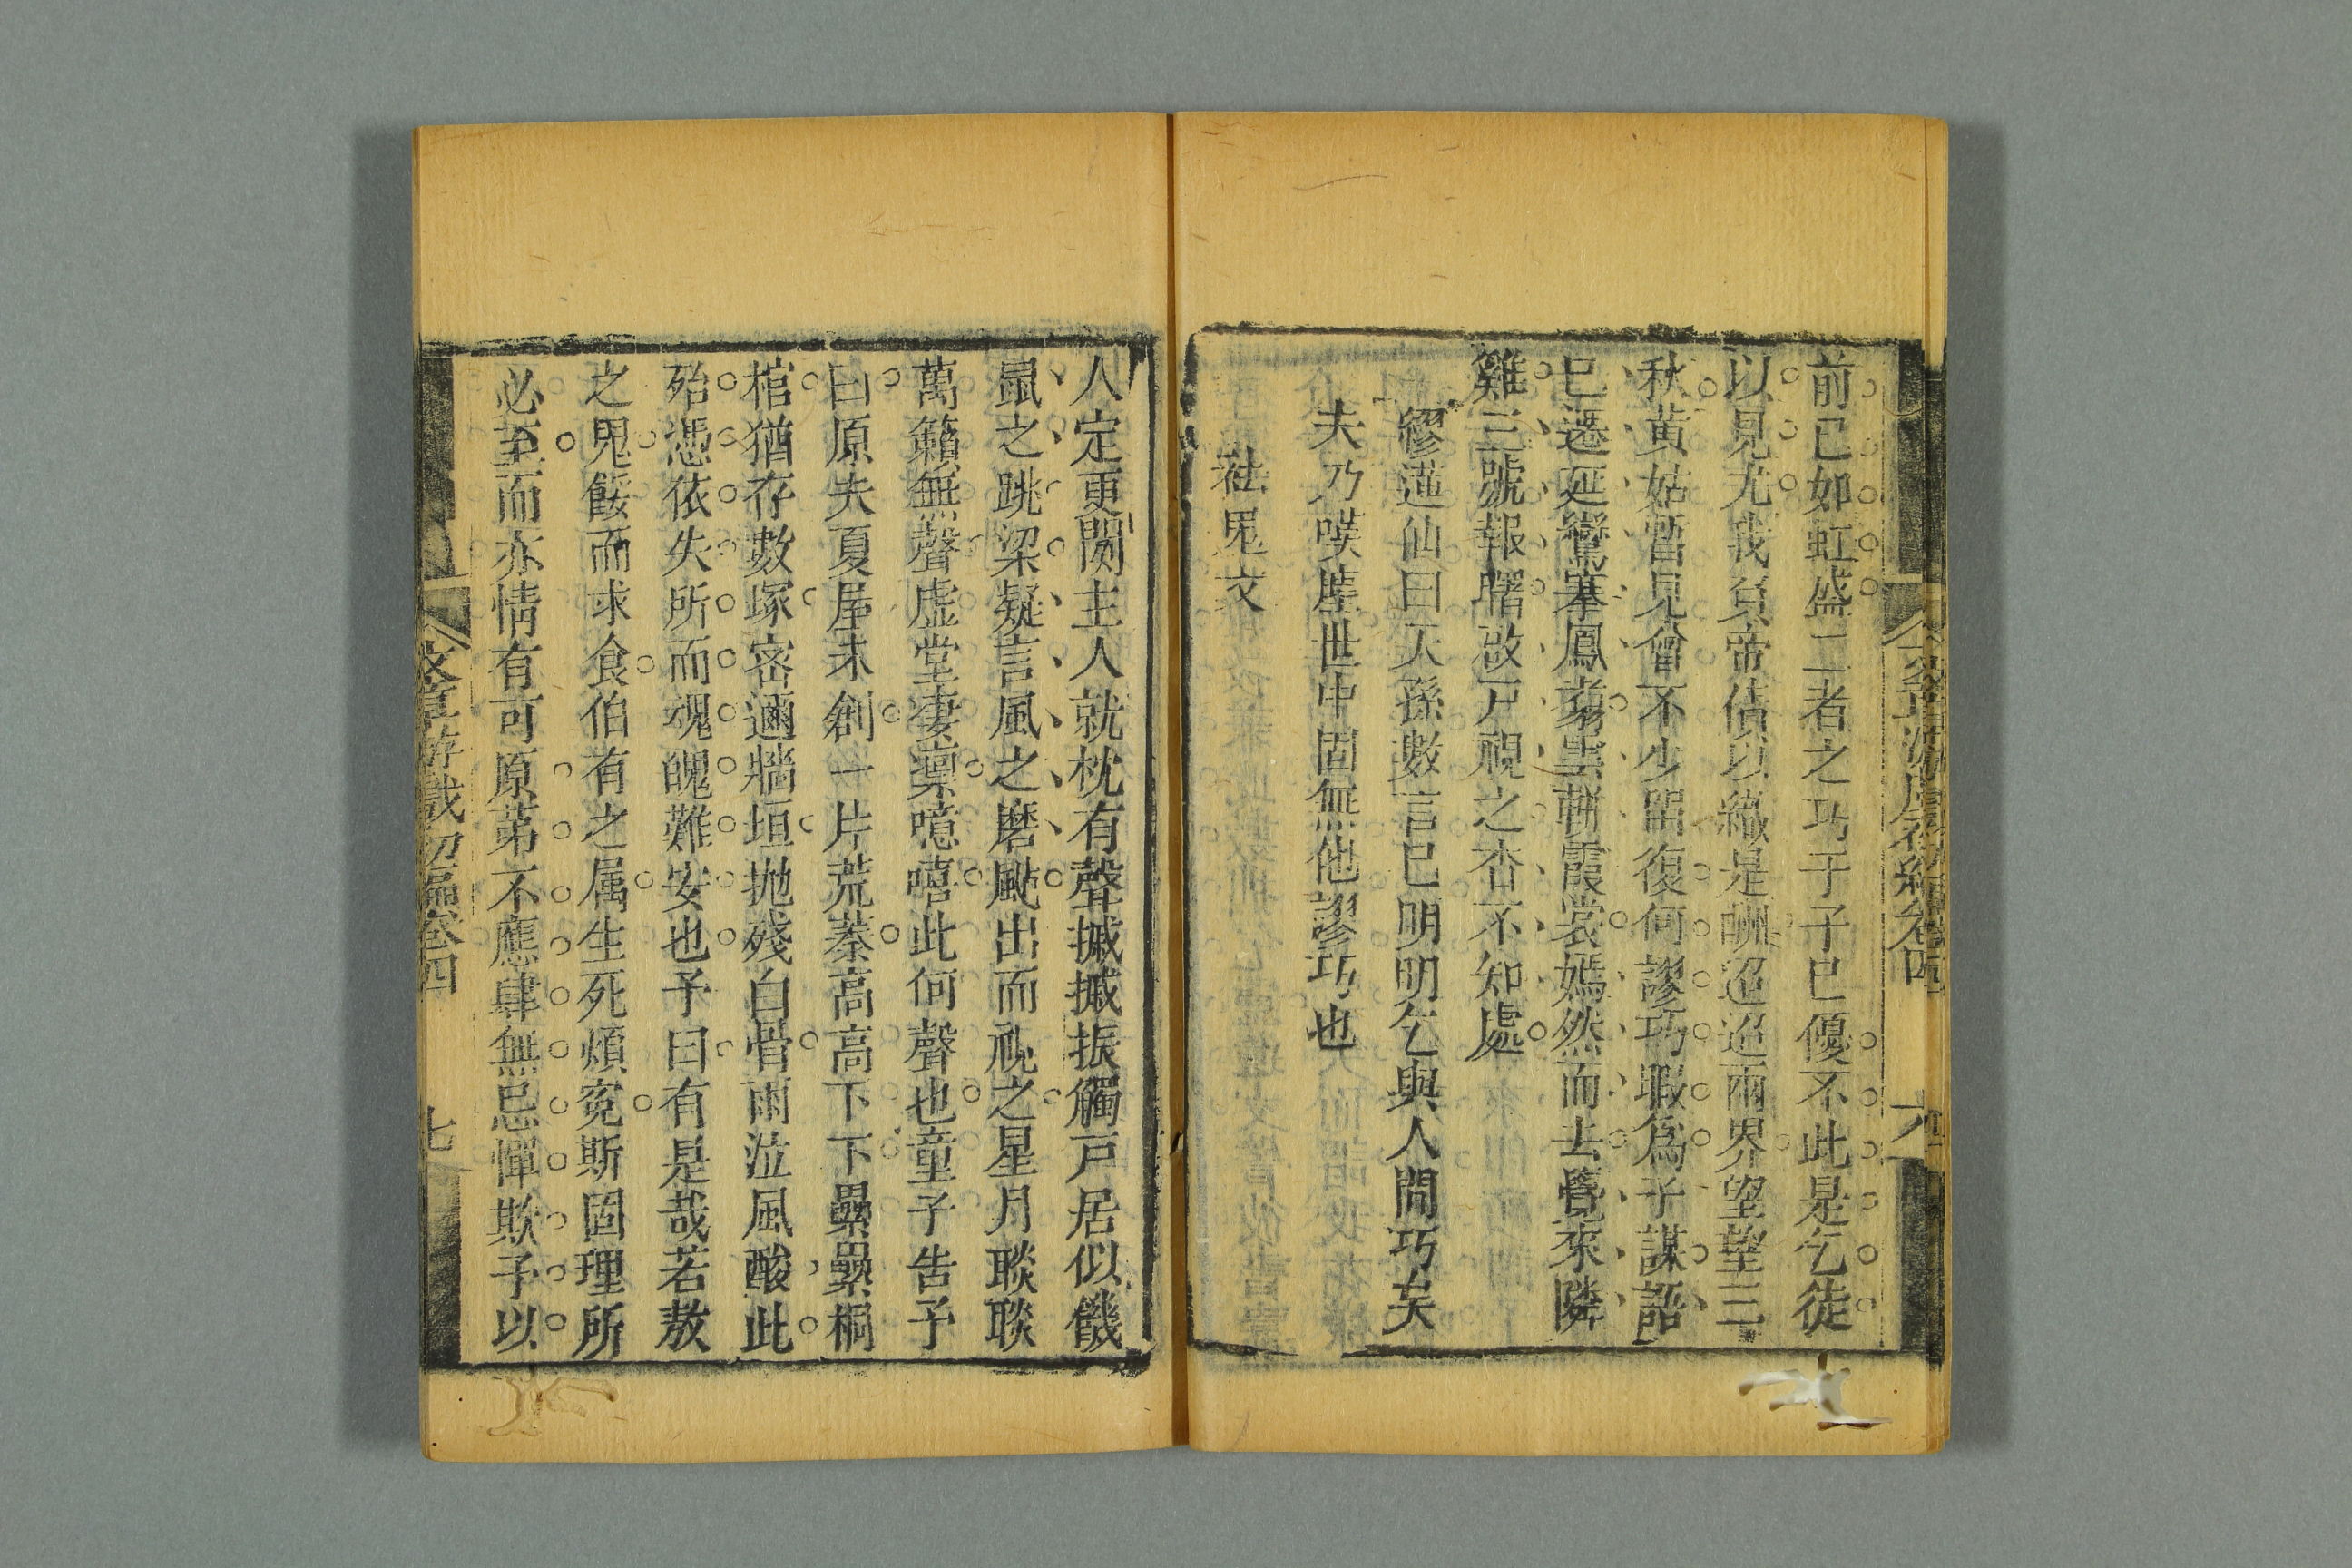 前已如虹盛二者之巧于子已優不此是乞徒
以見尤我負帝債以織是酬迢迢兩界望望三
秋黃姑暫見僧不少留復何謬巧暇為子謀語
已遷延鸞搴鳳翥雲輧霞裳嫣然而去覺來隣
雞三號報曙啟戶視之杳不知處
繆蓮仙曰天孫數言已明明乞與人間巧矣
夫乃嘆塵世中固無他謬巧也
祛鬼文
人定更闌主人就枕有聲摵摵振觸戶居似饑
鼠之跳梁疑言風之磨颭出而視之星月睒睒
萬籟無聲虛堂淒凛噫嘻此何聲也童子告予
曰原夫夏屋未創一片荒蓁高高下下纍纍桐
棺猶存數塚密邇牆垣拋殘白骨雨泣風酸此
殆憑依失所而魂魄難安也予曰有是哉若敖
之鬼餒而求食伯有之属生死煩寃斯固理所
必至而亦情有可原第不應肆無忌憚欺予以
文章游戲初編卷四
七